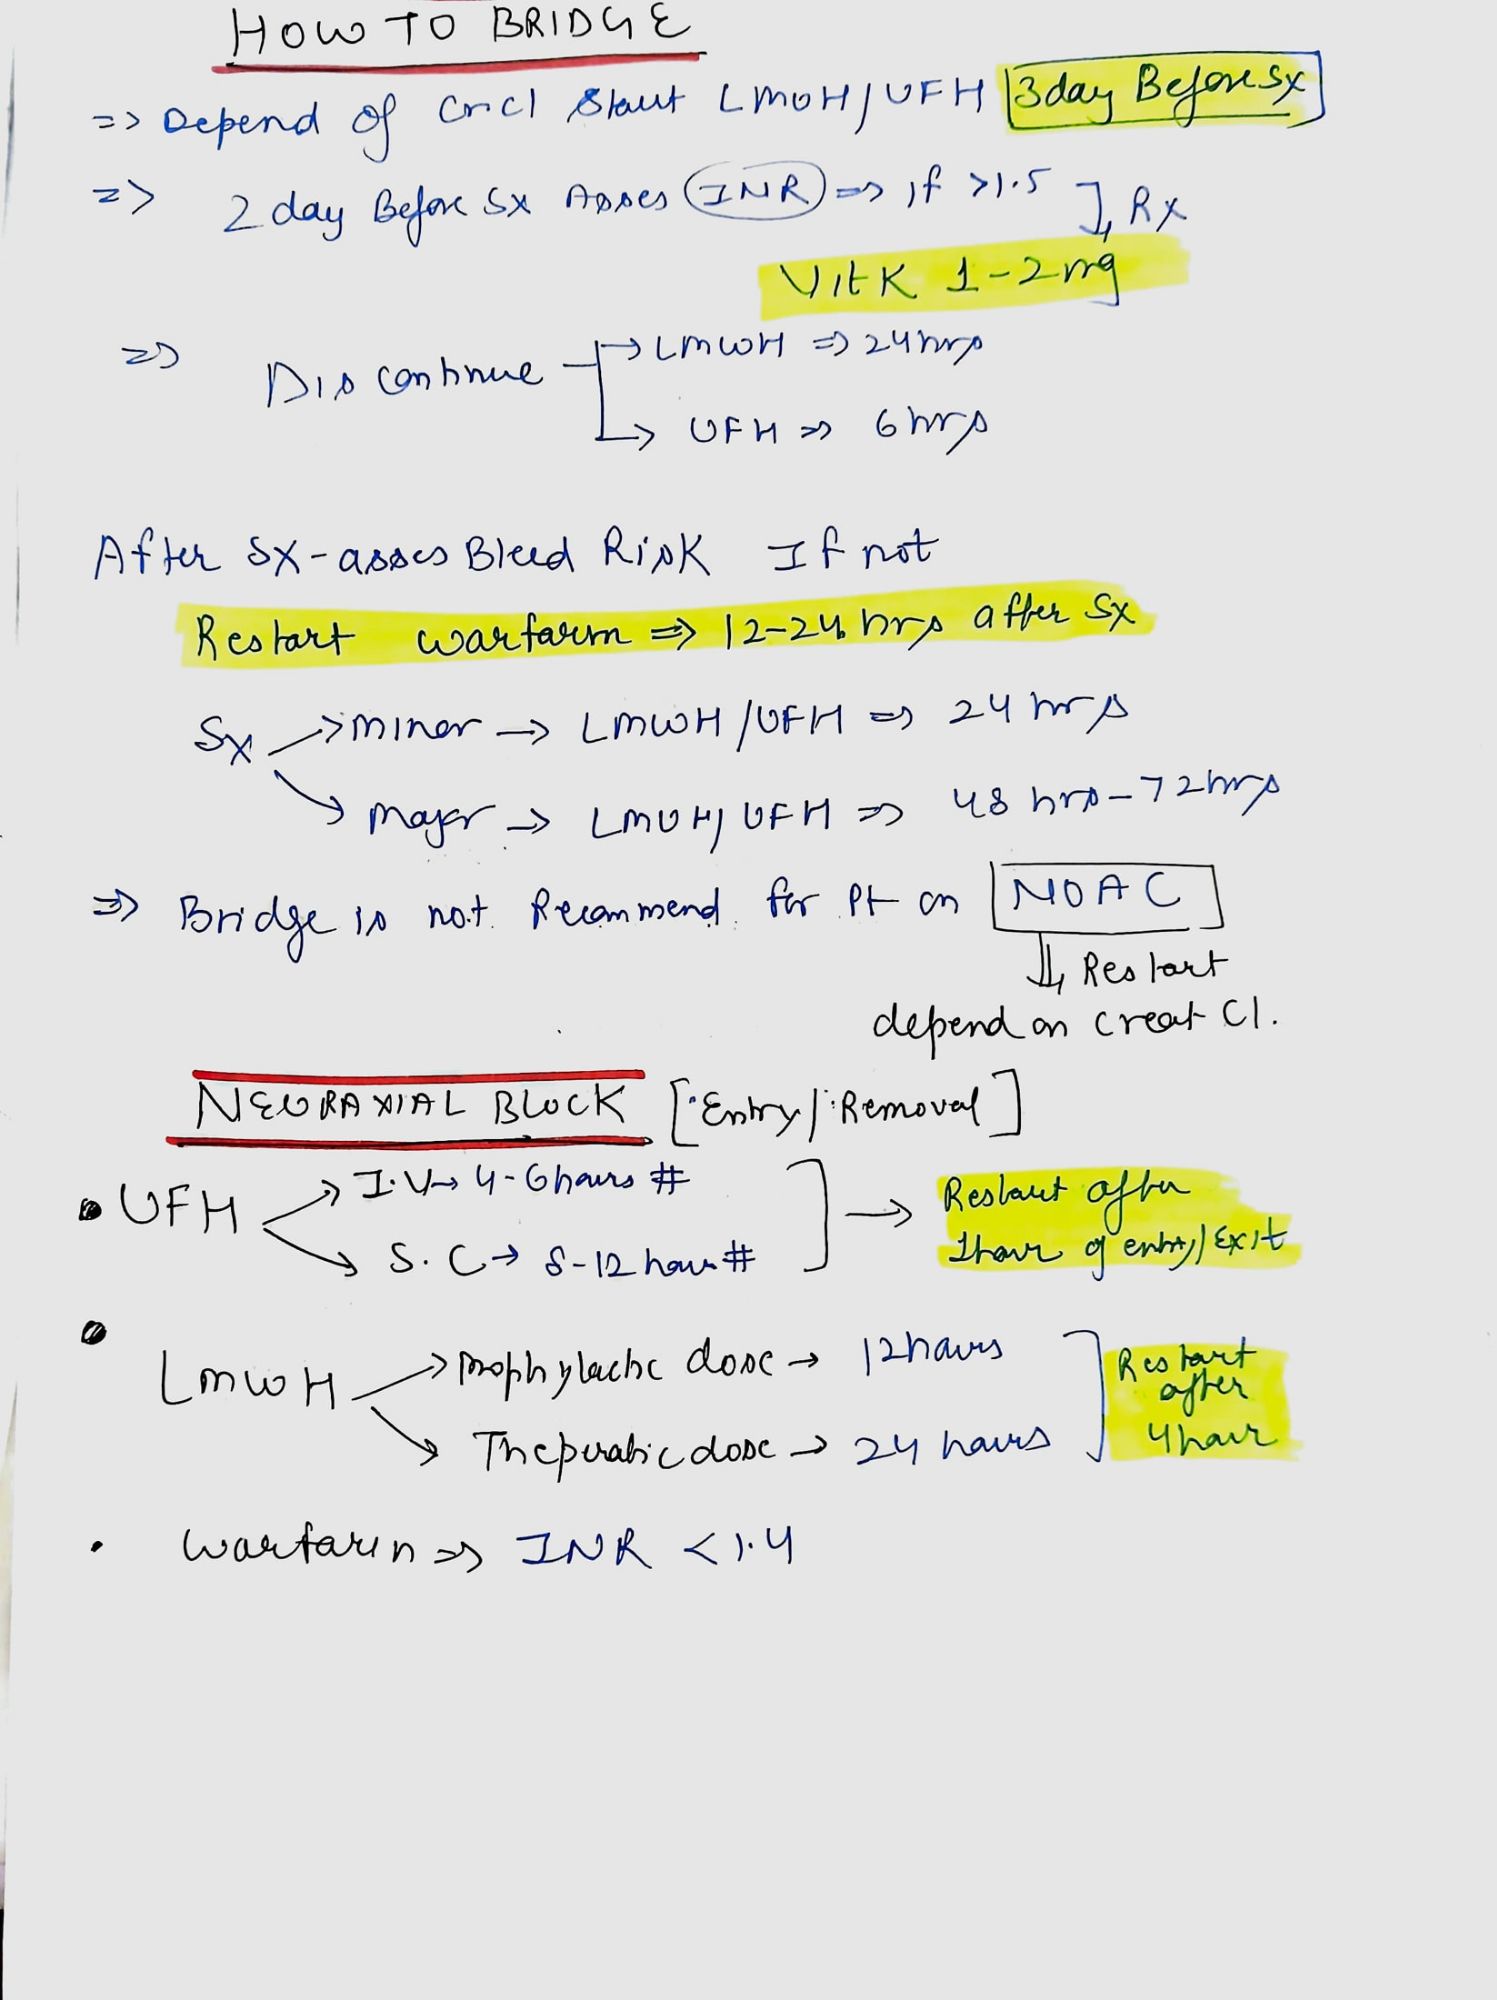 HOW TO BRIDGE
=> Depend of Crcl Start LMWH/UFH 3day Before Sx
=> 2 day Before Sx Asses INR => if >1.5 ] Rx
Vit K 1-2mg
=> Discontinue → LMWH => 24hrs
→ UFH => 6 hrs
After Sx-asses Bleed Risk If not
Restart warfarin => 12-24 hrs after Sx
Sx → minor → LMWH/UFH => 24 hrs
→ Major → LMWH/UFH => 48 hrs-72hrs
=> Bridge is not Recommend for Pt on NOAC
Restart
depend on Creat Cl.
NEURAXIAL BLOCK [Entry/Removal]
• UFH → I.V → 4-6hours #
→ S.C → 8-12 hour #
Restart after
1hour of entry/Exit
• LMWH → prophylactic dose → 12hours
→ Theperatic dose → 24 hours
Restart
after
4hour
• Warfarin => INR <1.4